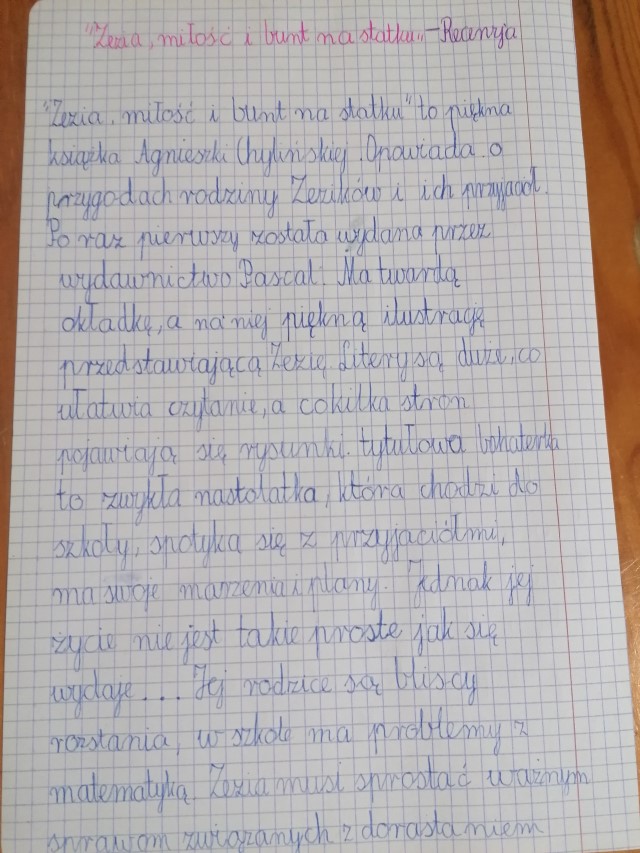 "Zezia, miłość i bunt na statku" - Recenzja
"Zezia, miłość i bunt na statku" to piękna
książka Agnieszki Chylińskiej. Opowiada o
przygodach rodziny Zezików i ich przyjaciół.
Po raz pierwszy została wydana przez
wydawnictwo Pascal. Ma twardą
okładkę, a na niej piękną ilustrację
przedstawiającą Zezię. Litery są duże, co
ułatwia czytanie, a co kilka stron
pojawiają się rysunki. tytułowa bohaterka
to zwykła nastolatka, która chodzi do
szkoły, spotyka się z przyjaciółmi,
ma swoje marzenia i plany. Jednak jej
życie nie jest takie proste jak się
wydaje... Jej rodzice są bliscy
rozstania, w szkole ma problemy z
matematyką. Zezia musi sprostać ważnym
sprawom związanych z dorastaniem